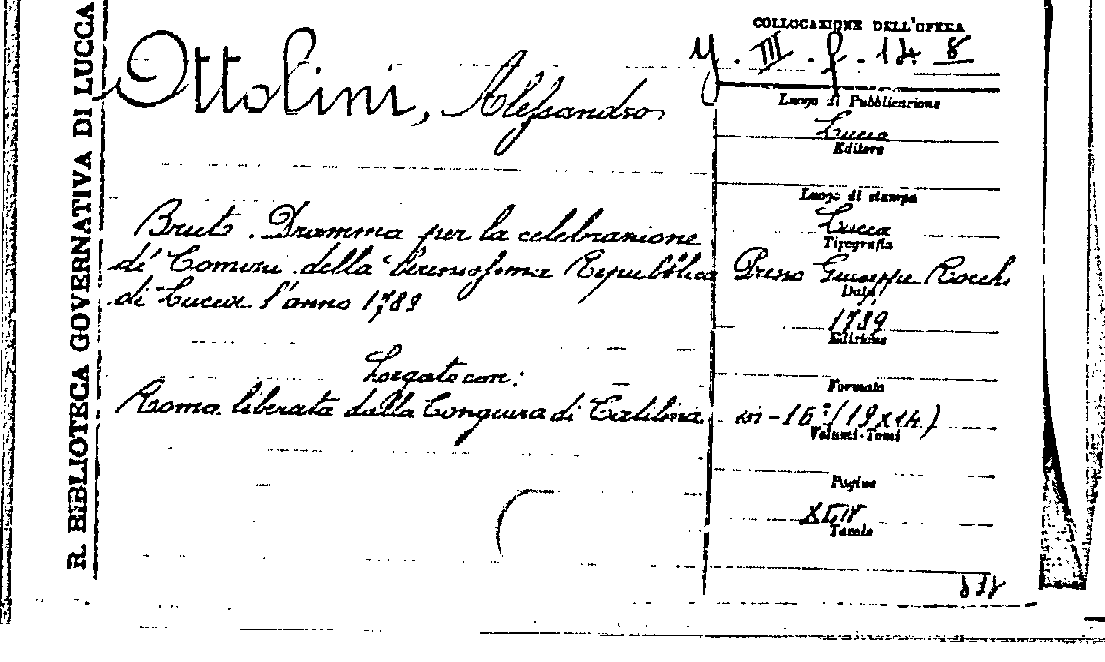 R. BIBLIOTECA GOVERNATIVA DI LUCCA
COLLOCAZIONE DELL'OPERA
Y. III. f. 14 8
Ottolini, Alessandro
Luogo di Pubblicazione
Lucca
Editore
Luogo di stampa
Lucca
Tipografia
Bruto. Dramma per la celebrazione
di' Comizi della Serenissima Repubblica
di Lucca l'anno 1789
Presso Giuseppe Rocchi
Data
1789
Edizione
Legato con:
Roma liberata dalla Congiura di Catilina
Formato
in-16°(19x14)
Volumi-Tomi
Pagine
XLIV
Tavole